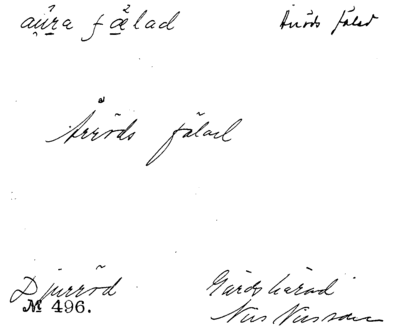 aura fælad Åröds fälad
Åröds fälad
Djurröd Gärds härad
№ 496. Nils Nilsson